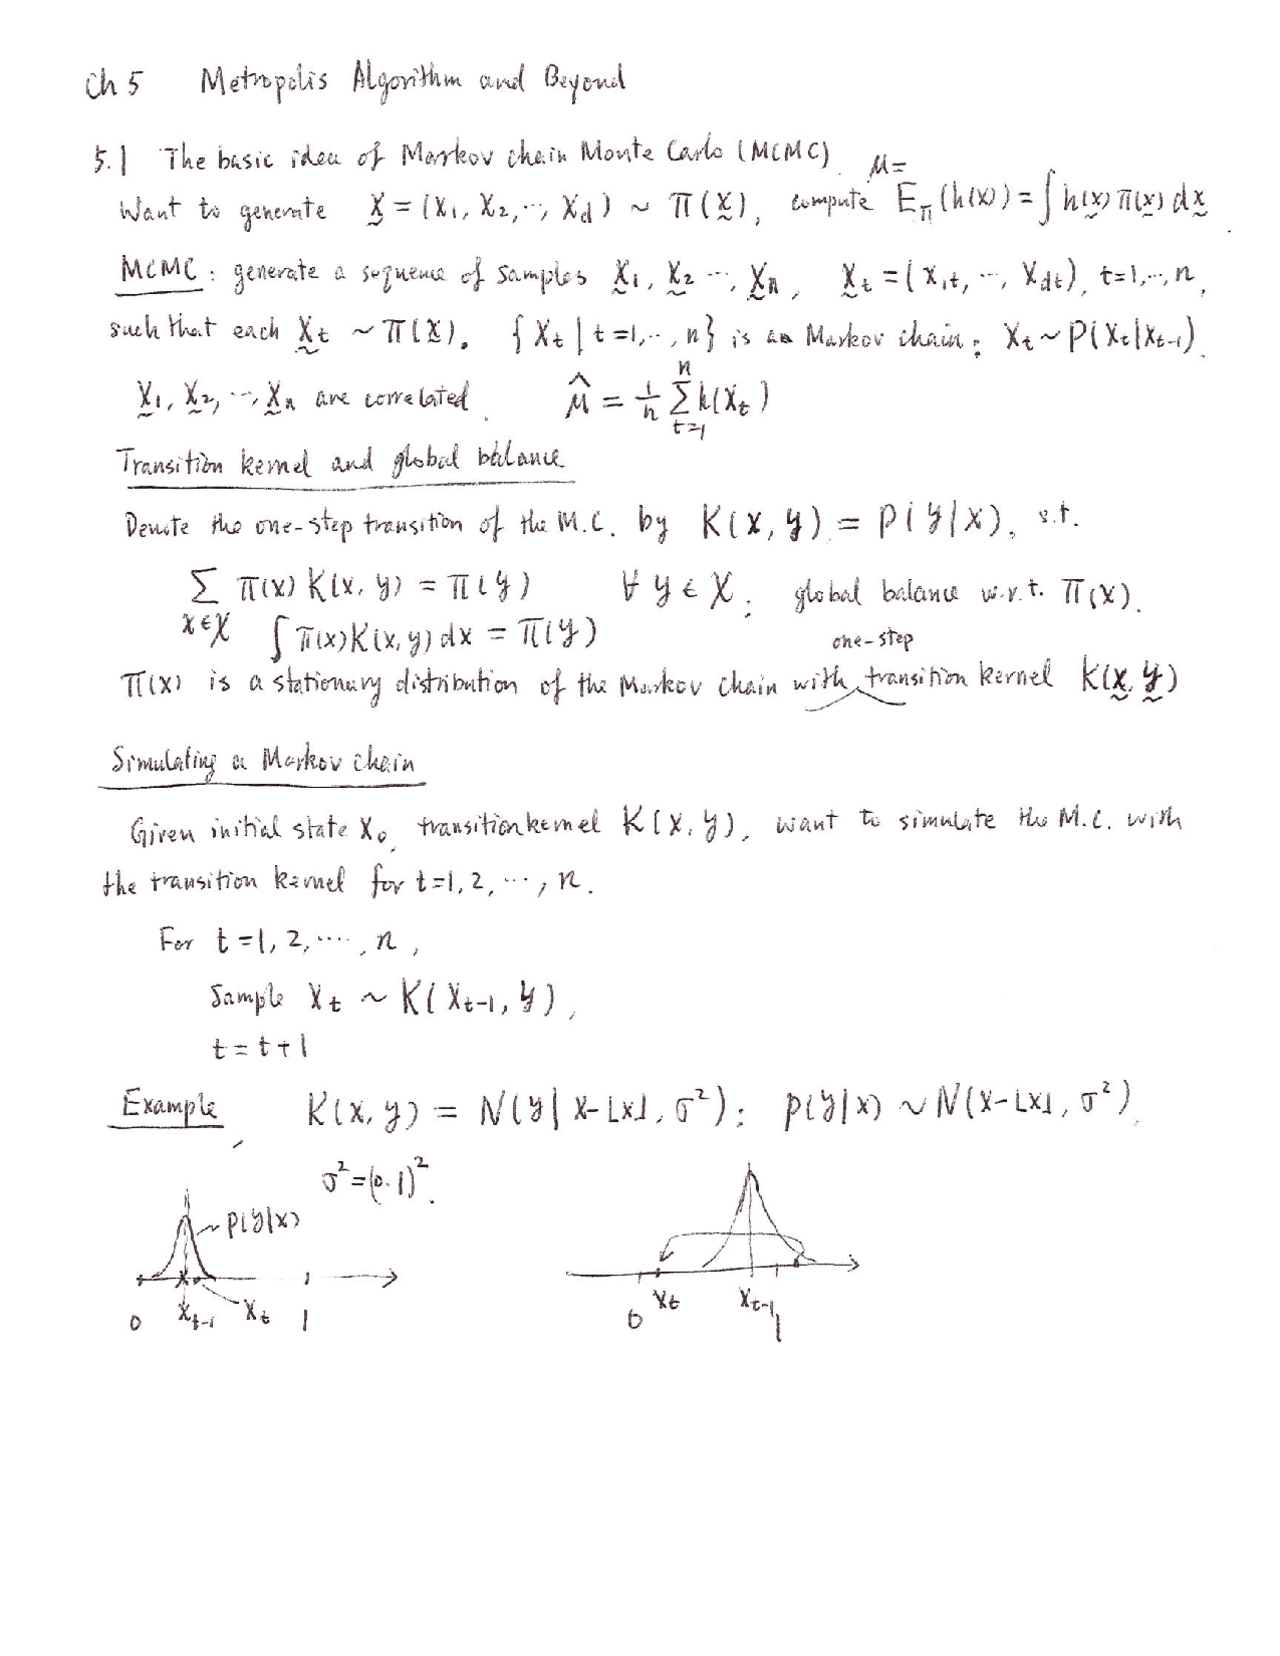 Ch 5 Metropolis Algorithm and Beyond
5.1 The basic idea of Markov chain Monte Carlo (MCMC).
Want to generate X = (X₁, X₂, ⋯, X_d) ~ π(x), compute μ = E_π(h(X)) = ∫ h(x) π(x) dx.
MCMC: generate a sequence of samples X₁, X₂ ⋯, Xₙ, X_t = (X₁t, ⋯, X_dt), t=1,⋯, n,
such that each X_t ~ π(x). {X_t | t=1,⋯, n} is a Markov chain: X_t ~ P(X_t|X_t-1).
X₁, X₂, ⋯, Xₙ are correlated. μ̂ = 1/n Σ_{t=1}^{n} h(X_t)
Transition kernel and global balance
Denote the one-step transition of the M.C. by K(x, y) = P(y|x), s.t.
Σ_{x∈X} π(x) K(x, y) = π(y) ∀ y ∈ X: global balance w.r.t. π(x).
∫ π(x) K(x, y) dx = π(y)
π(x) is a stationary distribution of the Markov chain with one-step transition kernel K(x, y)
Simulating a Markov chain
Given initial state X₀, transition kernel K(x, y), want to simulate the M.C. with
the transition kernel for t=1, 2, ⋯, n.
For t=1, 2, ⋯, n,
Sample X_t ~ K(X_t-1, y),
t = t+1
Example K(x, y) = N(y | x-⌊x⌋, σ²): p(y|x) ~ N(x-⌊x⌋, σ²),
σ² = (0.1)².
p(y|x)
0 X_t-1 X_t 1
0 X_t X_t-1 1